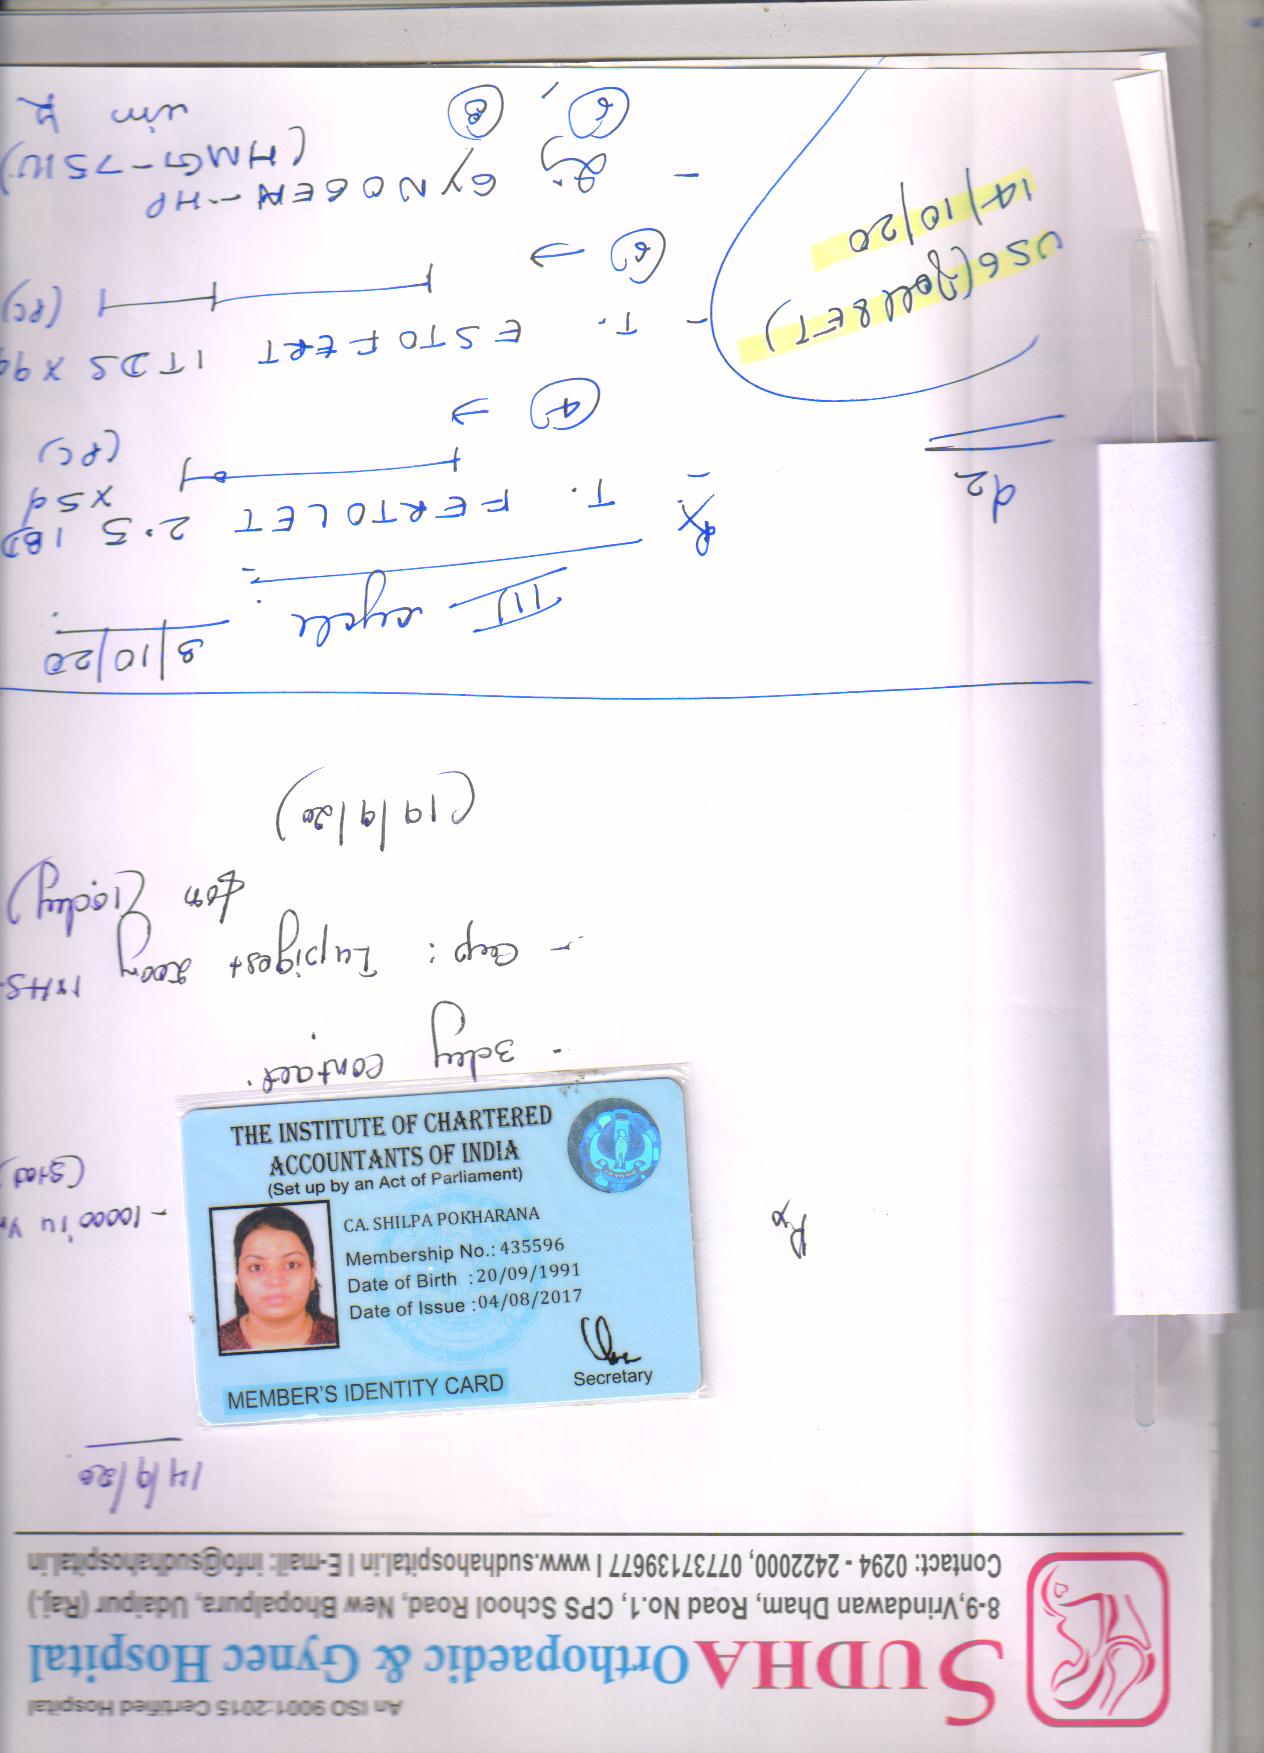 An ISO 9001:2015 Certified Hospital
SUDHA Orthopaedic & Gynec Hospital
8-9,Vrindawan Dham, Road No.1, CPS School Road, New Bhopalpura, Udaipur (Raj.)
Contact: 0294 - 2422000, 07737139677 I www.sudhahospital.in I E-mail: info@sudhahospital.in
14/9/20
THE INSTITUTE OF CHARTERED
ACCOUNTANTS OF INDIA
(Set up by an Act of Parliament)
CA. SHILPA POKHARANA
Membership No.: 435596
Date of Birth : 20/09/1991
Date of Issue : 04/08/2017
Secretary
MEMBER'S IDENTITY CARD
Rx
- 10000 iu
(Stat)
- 3day contact.
- Cap: Lupigest 200mg 1xHS
for 10day
(19/9/20)
3/10/20
III cycle
d2
Rx
- T. FERTOLET 2.5 1BD
x5d
(PC)
4 →
- T. ESTOFERT 1TDS x 9d
6 → (PC)
USG (foll & ET)
14/10/20
- Inj GYNOGEN-HP
(HMG-75IU)
6, 8